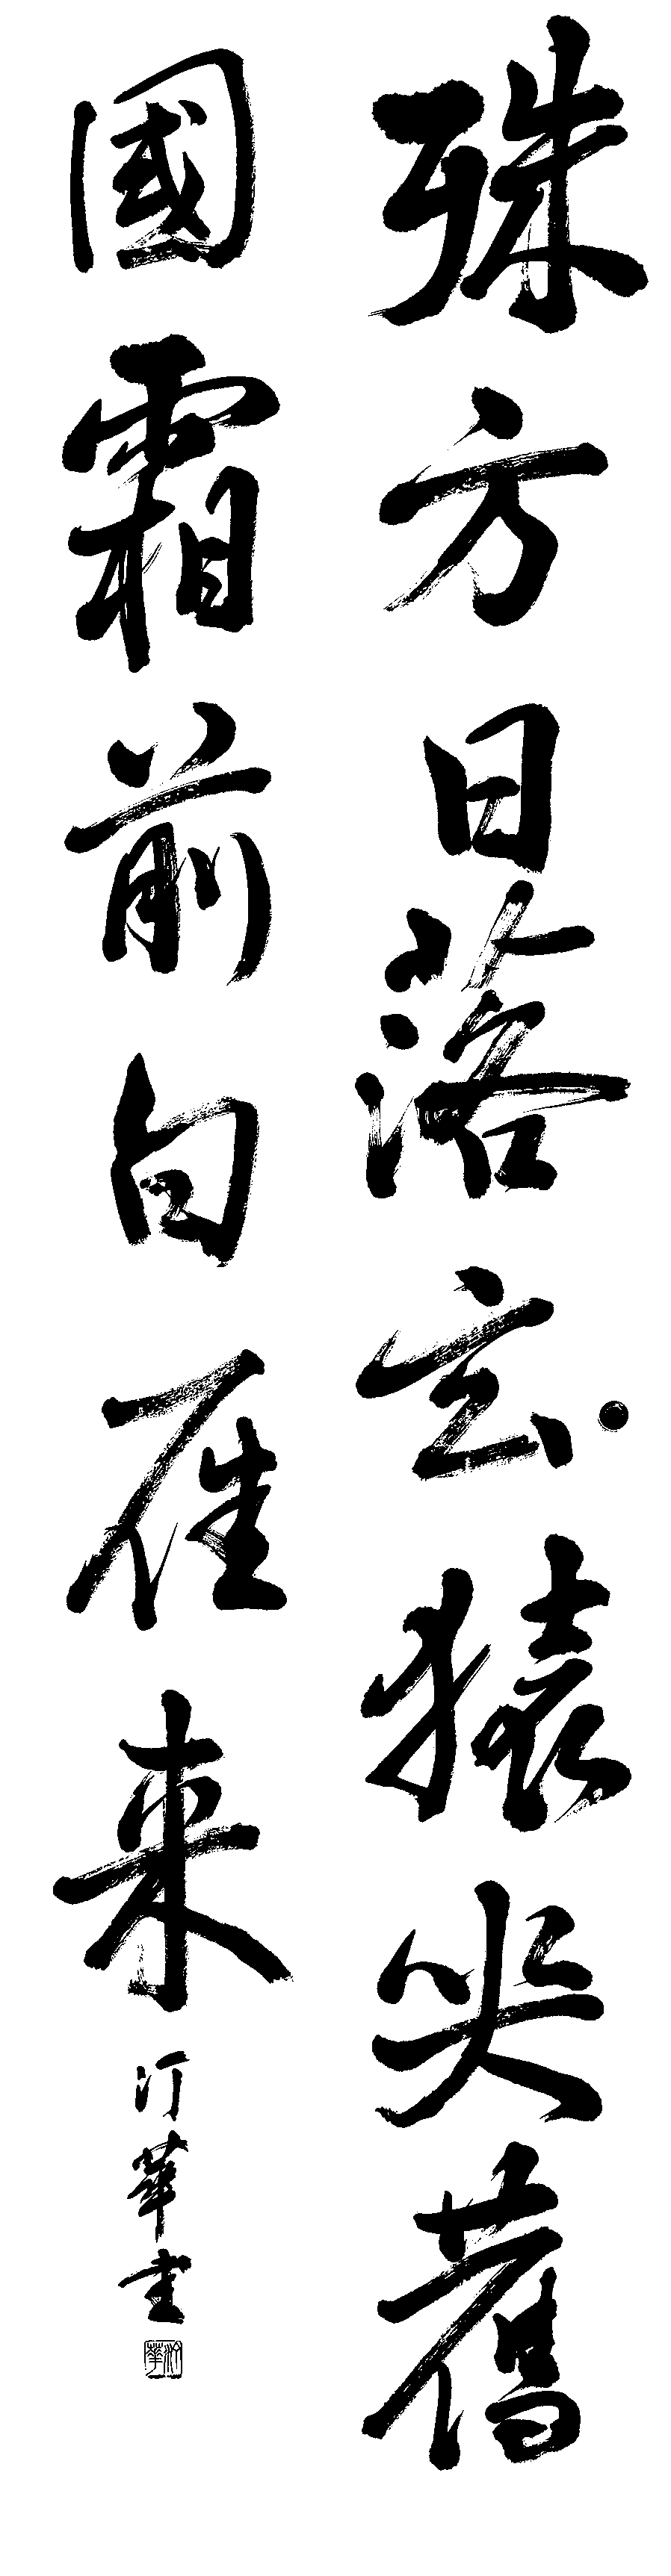 殊方日落玄猿哭舊
國霜前白雁来
汀華書
汀華